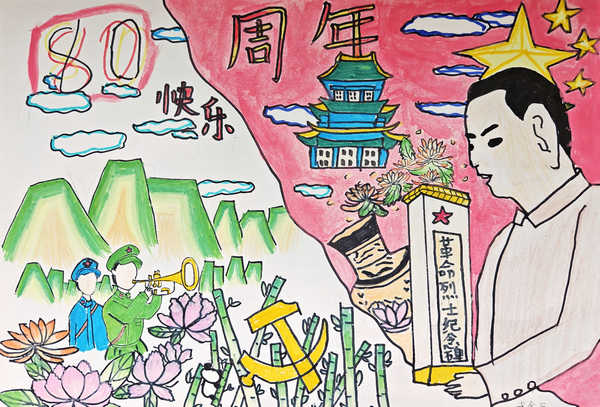 80
周年
快乐
革命烈士纪念碑